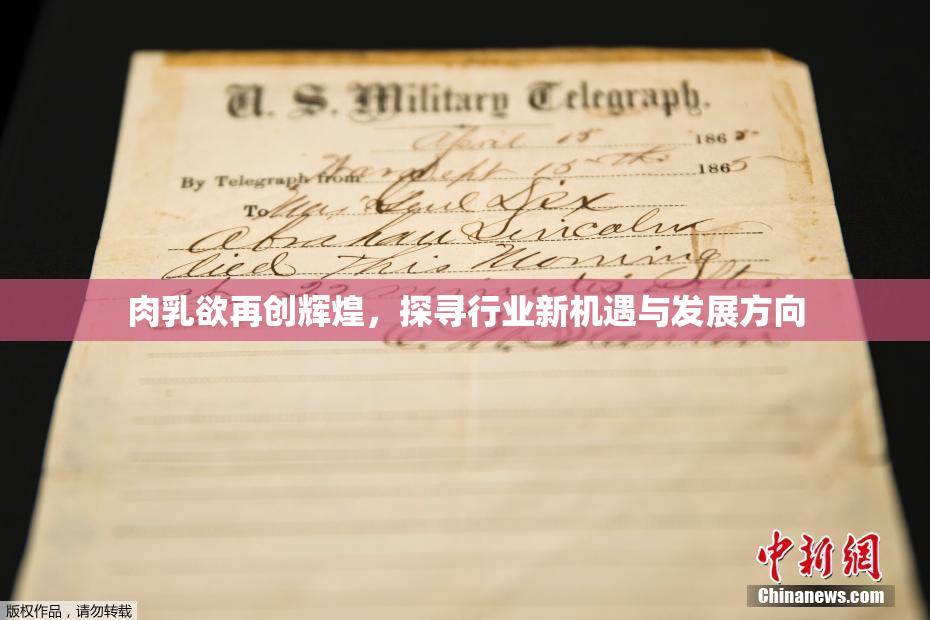 U. S. Military Telegraph.
April 15 1865
By Telegraph from War Dept 15th 1865
To Maj Genl Dix
Abraham Lincoln
died This Morning
22 minutes after
肉乳欲再创辉煌，探寻行业新机遇与发展方向
E. M. Stanton
中新网
Chinanews.com
版权作品，请勿转载